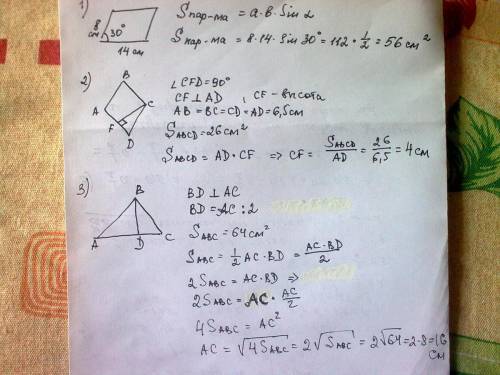 1)
8 см
30°
14 см
Sпар-ма = a·b·Sin α
Sпар-ма = 8·14·Sin 30° = 112·1/2 = 56 см²
2)
B
A
C
F
D
∠CFD = 90°
CF ⊥ AD, CF - высота
AB = BC = CD = AD = 6,5 см
SABCD = 26 см²
SABCD = AD·CF => CF = SABCD/AD = 26/6,5 = 4 см
3)
B
A D C
BD ⊥ AC
BD = AC : 2
SABC = 64 см²
SABC = 1/2 AC·BD = AC·BD/2
2SABC = AC·BD =>
2SABC = AC · AC/2
4SABC = AC²
AC = √4SABC = 2√SABC = 2√64 = 2·8 = 16
см